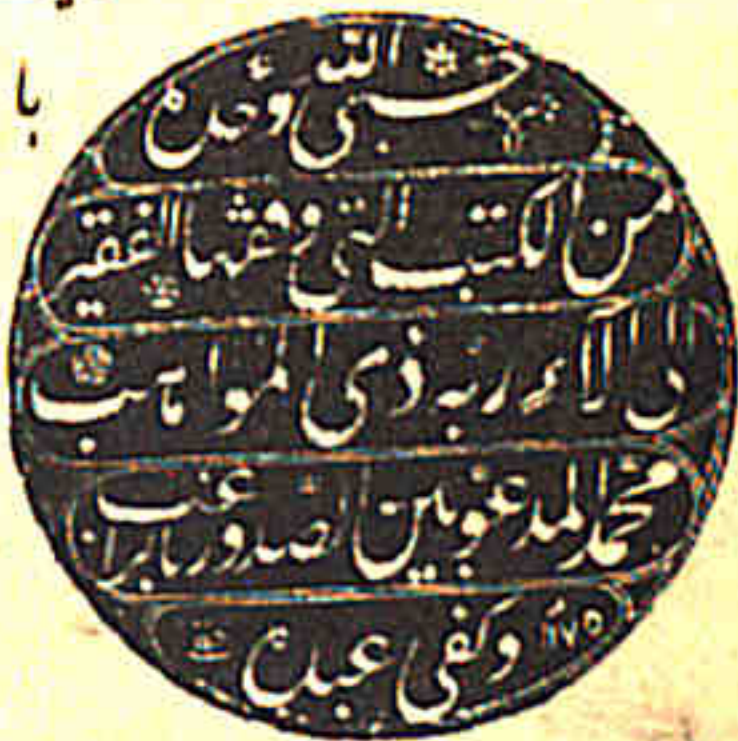 با
حسبي الله وحده
من الكتب التي وقفها الفقير
الى آلاء ربه ذي المواهب
محمد المدعو بين الصدور براغب
وكفى عبده ١١٧٥